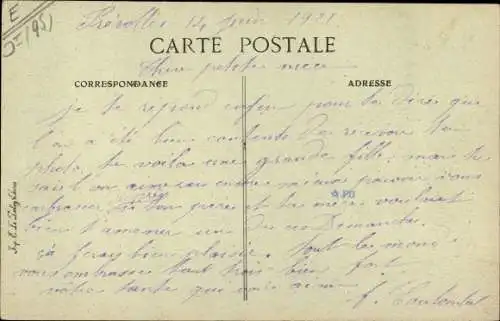 14 Juin 1921
CARTE POSTALE
Chère petite nièce
CORRESPONDANCE
ADRESSE
je te répond enfin pour te dire que
l'on a été bien contents de recevoir ta
photo, te voila une grande fille, mais tu
sait on aimerait encore mieux pouvoir vous
embrasser, si ton père et ta mère voulait
bien t'amener un de ces Dimanches
ça ferais bien plaisir. Tout le monde
vous embrasse tout trois bien fort
votre tante qui vous aime